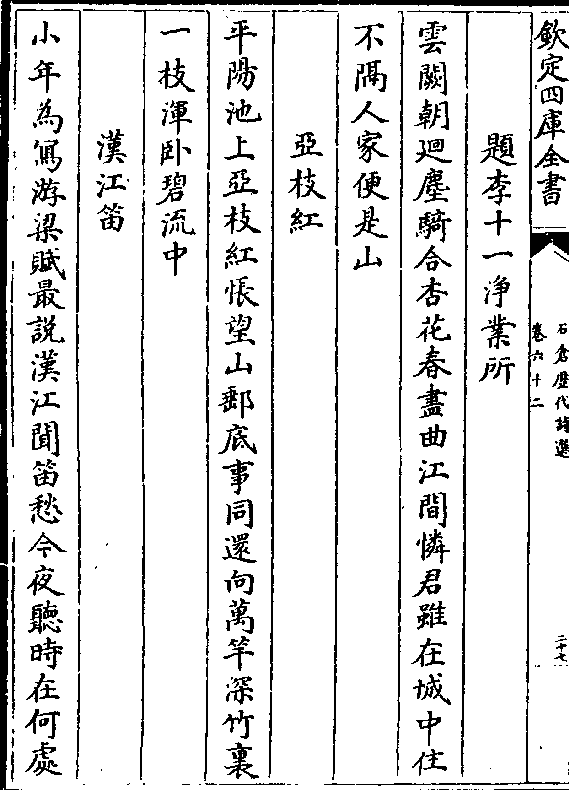 欽定四庫全書
石倉歷代詩選
卷六十二
二十七
題李十一淨業所
雲闕朝迴塵騎合杏花春盡曲江間憐君雖在城中住
不隔人家便是山
亞枝紅
平陽池上亞枝紅悵望山郵底事同還向萬竿深竹裏
一枝渾卧碧流中
漢江笛
小年為寫游梁賦最説漢江聞笛愁今夜聽時在何處